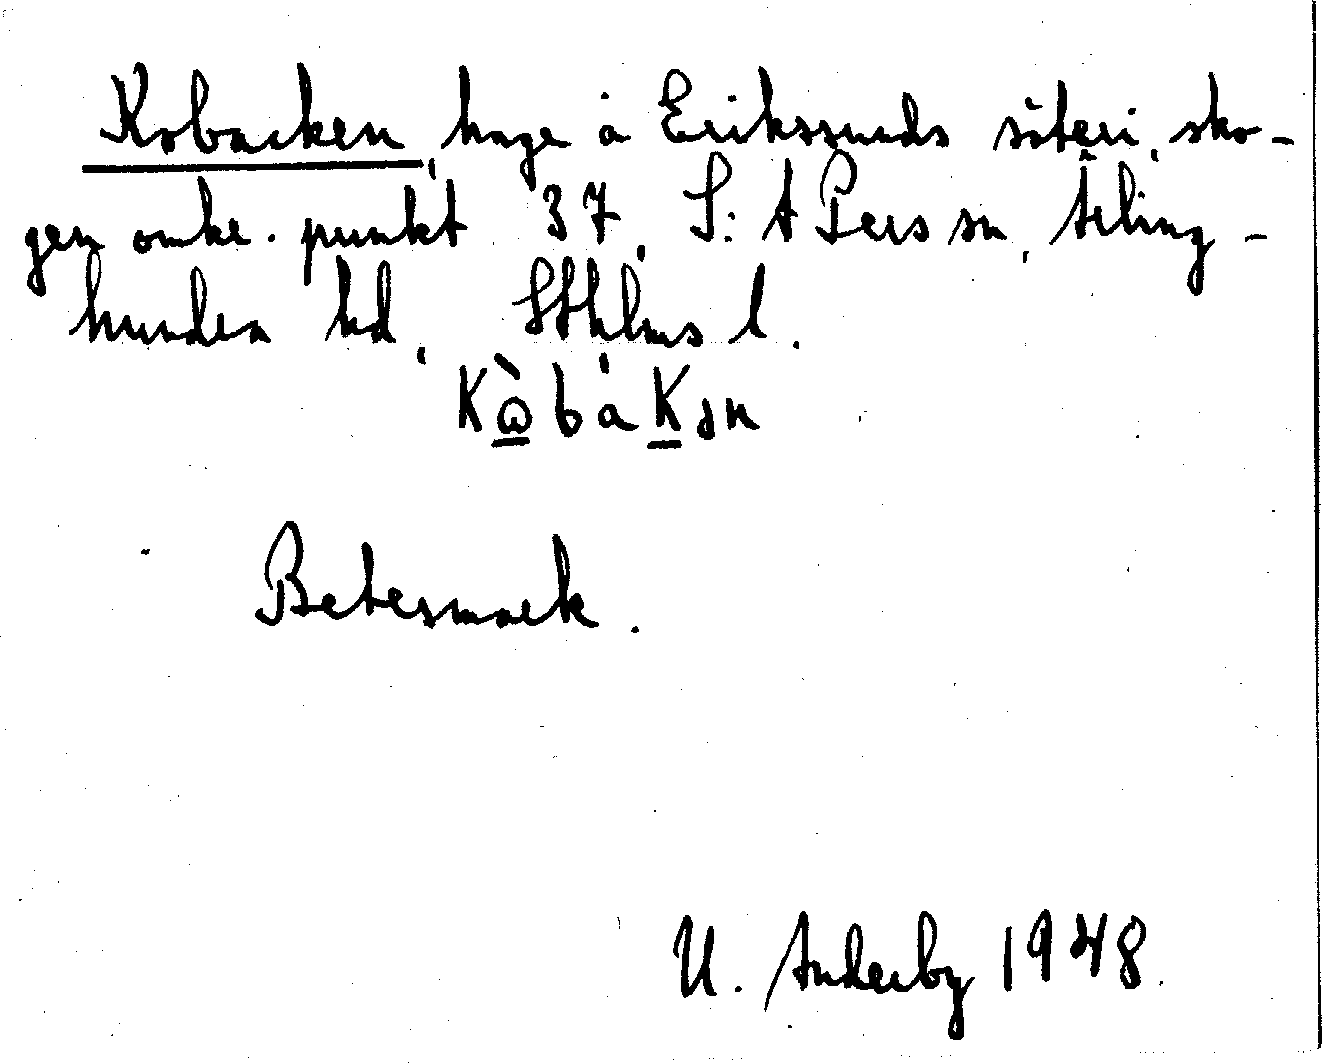 Kobacken, hage å Erikssunds säteri, sko-
gen omkr. punkt 37, S:t Pers sn, Ärling-
hundra hd, Sthlms l.
Betesmark.
U. Anderby 1948.